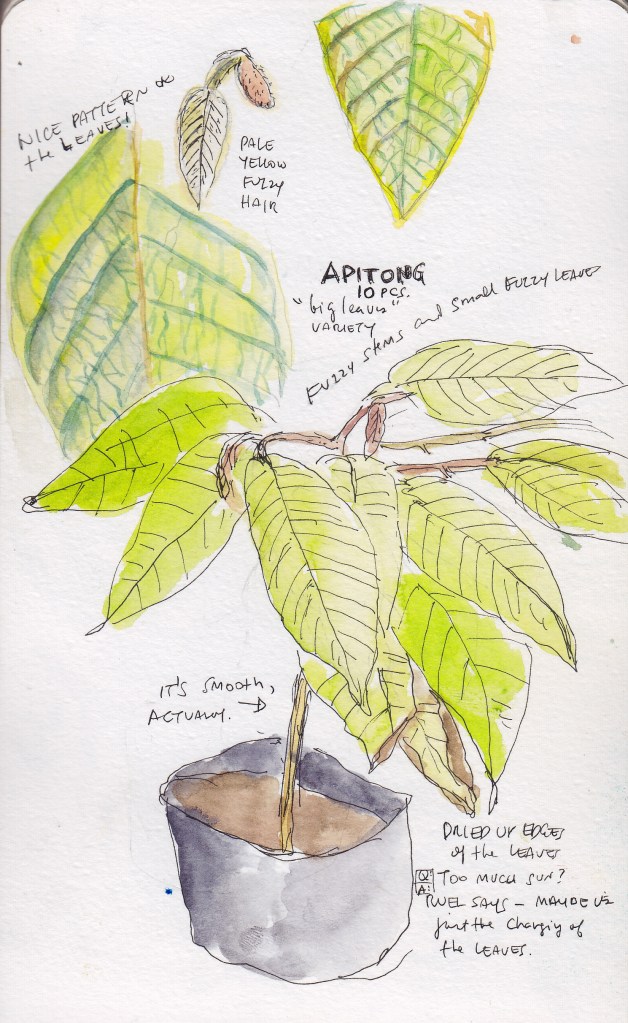 NICE PATTERN on
the LEAVES!
PALE
YELLOW
FUZZY
HAIR
APITONG
10 PCS.
"big leaves"
VARIETY
FUZZY STEMS and small FUZZY LEAVES
IT'S SMOOTH,
ACTUALLY.
DRIED UP EDGES
of the LEAVES
Q: TOO MUCH SUN?
A: SAYS – MAYBE
just the changing of
the LEAVES.